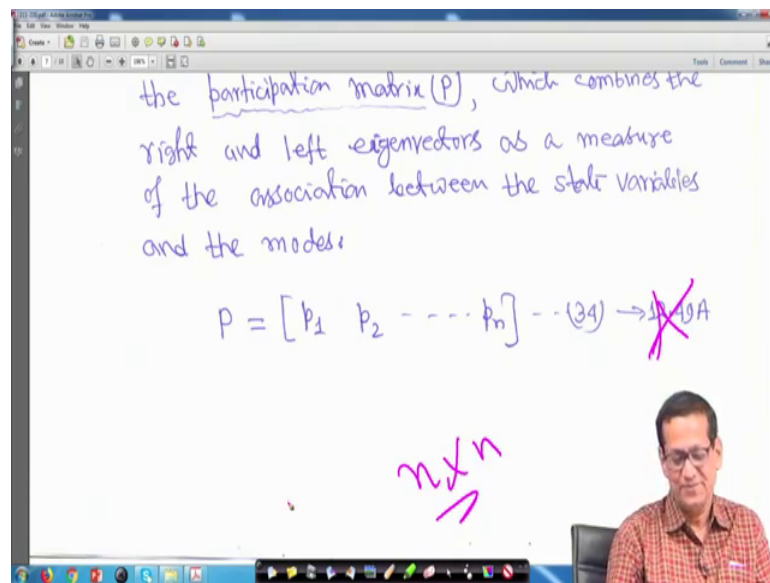 File Edit View Window Help
Create
Tools Comment
the participation matrix (P), which combines the
right and left eigenvectors as a measure
of the association between the state variables
and the modes.
P = [p1 p2 ---- pn] -- (34) →
n×n